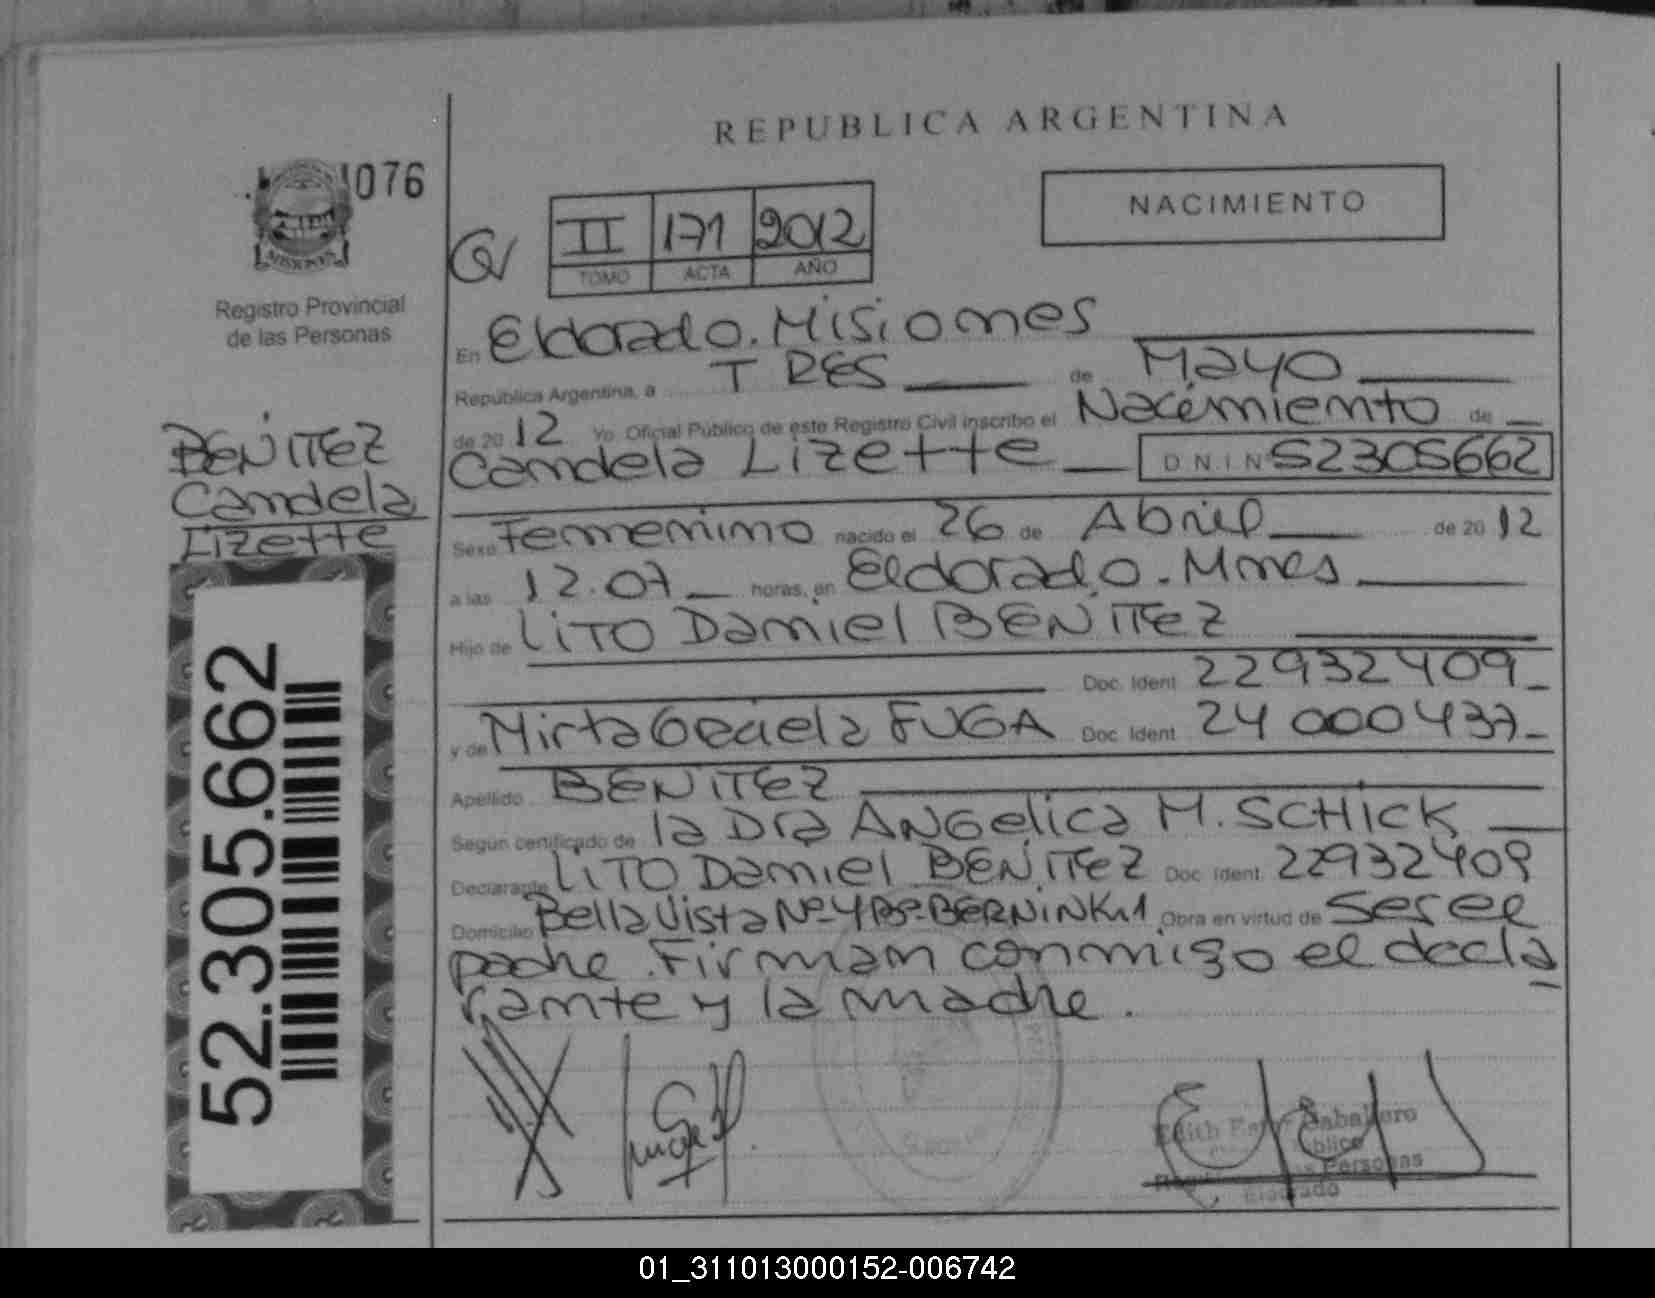 REPUBLICA ARGENTINA
1076
NACIMIENTO
II 171 2012
TOMO ACTA AÑO
MISIONES
Registro Provincial
de las Personas
En Eldorado. Misiones
República Argentina, a TRES de Mayo
de 20 12 Yo Oficial Público de este Registro Civil inscribo el Nacimiento de
Candela Lizette D N.I N 52305662
BENITEZ
Candela
Lizette
Sexo Femenino nacido el 26 de Abril de 20 12
a las 12.07 horas, en Eldorado. Mnes
Hijo de LITO Daniel BENITEZ
Doc. Ident 22932409
y de Mirta Graciela FUGA Doc. Ident 24000437
Apellido BENITEZ
Según certificado de la Dra ANGelica M. SCHICK
Declarante LITO Daniel BENITEZ Doc. Ident. 22932409
Domicilio Bella Vista Nº 4 Bº BERNINK1 Obra en virtud de Ser el
padre. Firman conmigo el decla
rante y la madre.
52.305.662
Edith Caballero
Personas
Eldorado
01_311013000152-006742